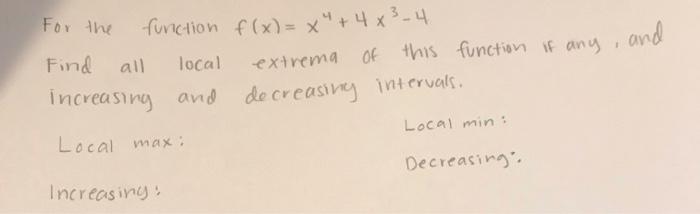 For the function f(x) = x⁴ + 4x³ - 4
Find all local extrema of this function if any, and
increasing and decreasing intervals.
Local max: Local min:
Increasing: Decreasing: